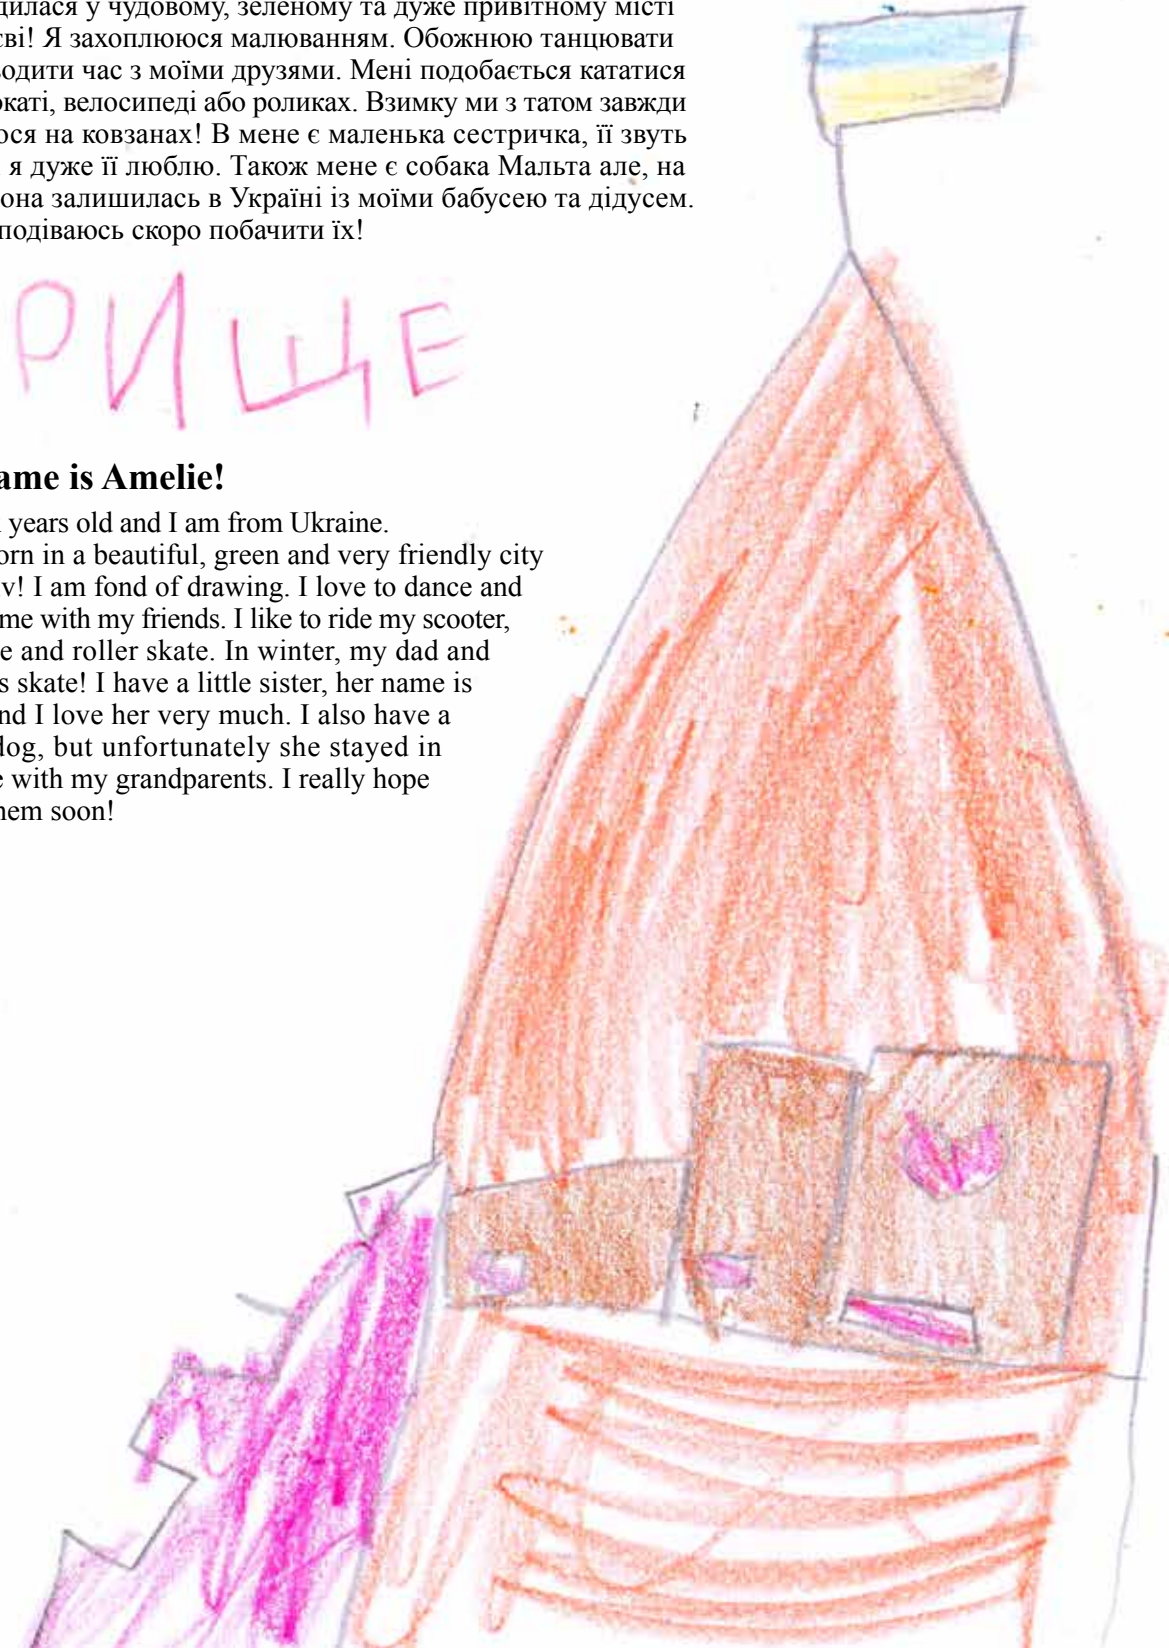 дилася у чудовому, зеленому та дуже привітному місті
єві! Я захоплююся малюванням. Обожнюю танцювати
одити час з моїми друзями. Мені подобається кататися
окаті, велосипеді або роликах. Взимку ми з татом завжди
ося на ковзанах! В мене є маленька сестричка, її звуть
я дуже її люблю. Також мене є собака Мальта але, на
она залишилась в Україні із моїми бабусею та дідусем.
подіваюсь скоро побачити їх!
РИЩЕ
ame is Amelie!
years old and I am from Ukraine.
orn in a beautiful, green and very friendly city
v! I am fond of drawing. I love to dance and
me with my friends. I like to ride my scooter,
e and roller skate. In winter, my dad and
s skate! I have a little sister, her name is
nd I love her very much. I also have a
dog, but unfortunately she stayed in
e with my grandparents. I really hope
hem soon!